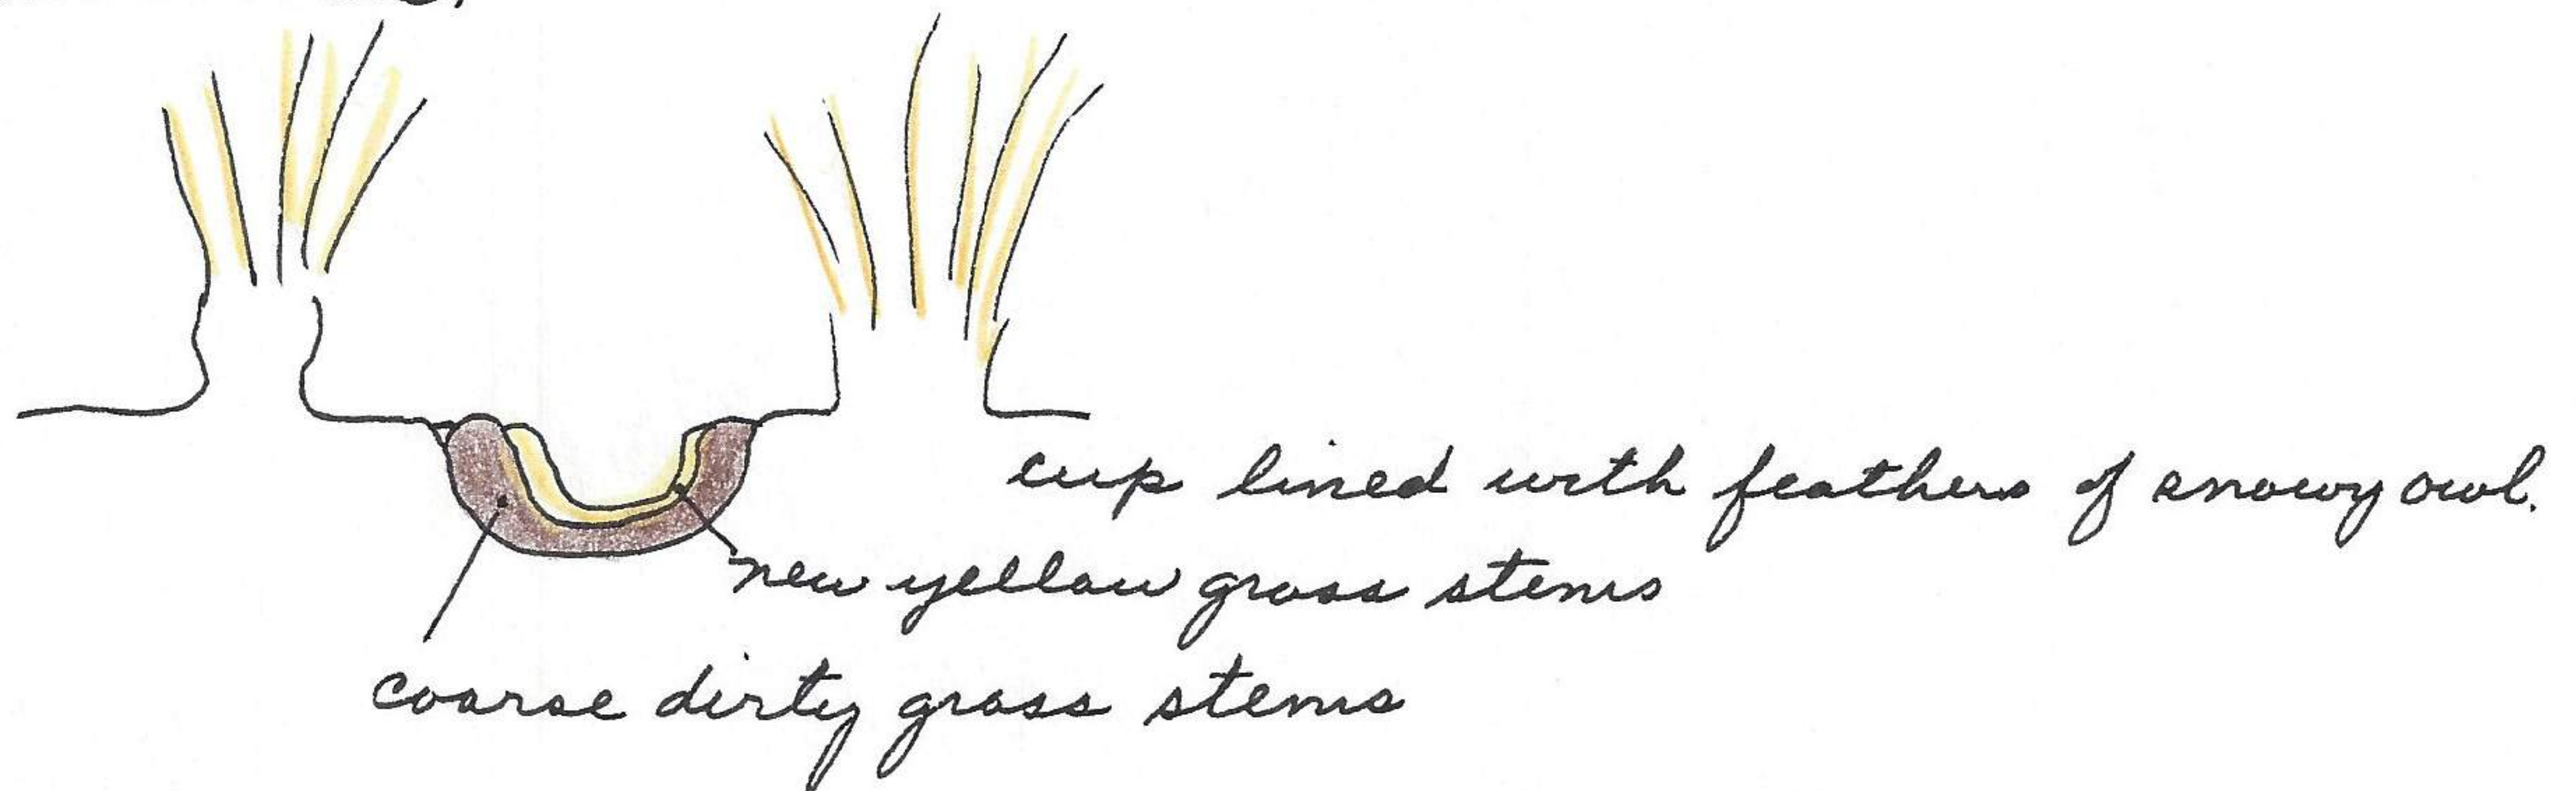 cup lined with feathers of snowy owl.
new yellow grass stems
coarse dirty grass stems